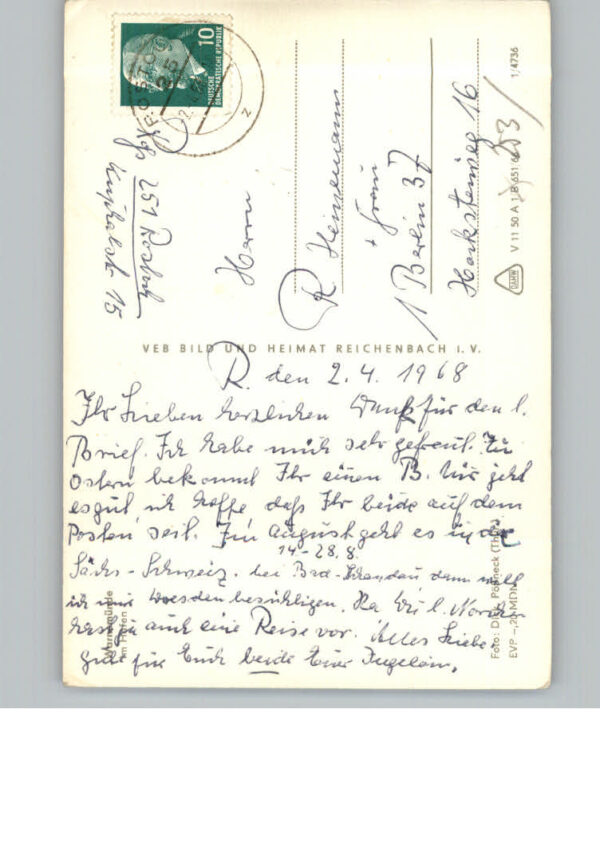 10
DEUTSCHE DEMOKRATISCHE REPUBLIK
ROSTOCK
25
z
251 Rostock
15
Herrn
R. Heinemann
+ Frau
1 Berlin 37
Hocksteinweg 16
1/4736
V 11 50 A 1 B 651
23
DAHW
VEB BILD UND HEIMAT REICHENBACH I. V.
R. den 2.4. 1968
Ihr Lieben herzlichen Dank für den l.
Brief. Ich habe mich sehr gefreut. Zu
Ostern bekommt Ihr einen B. Mir geht
es gut, ich hoffe daß Ihr beide auf dem
Posten seit. Im August geht es in die
14-28.8.
Sächs-Schweiz. bei Bad-Schandau dann will
ich mir Dresden besichtigen. l.
hast auch eine Reise vor. Alles Liebe
gute für Euch beide Eure
Warnemünde
Im Hafen
Foto: Pößneck (Thür.)
EVP -,20 MDN